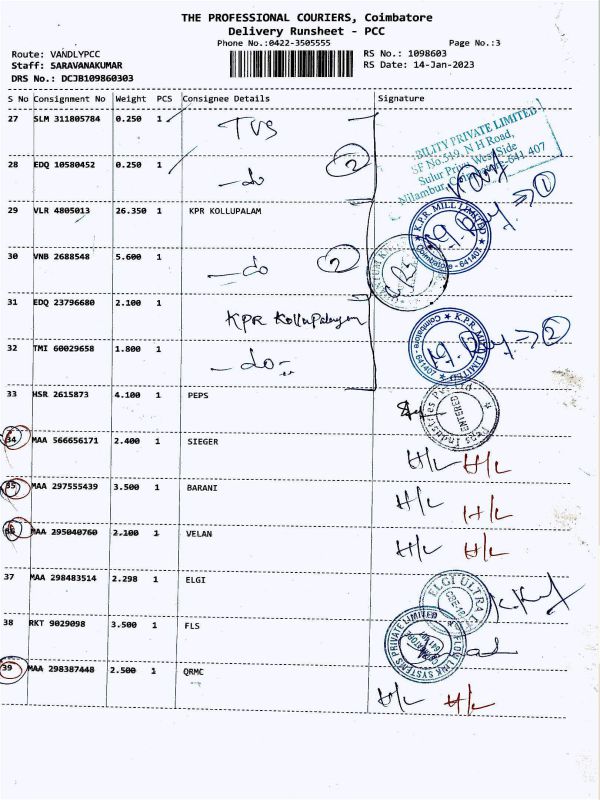 THE PROFESSIONAL COURIERS, Coimbatore
Delivery Runsheet - PCC
Phone No.:0422-3505555
Page No.:3
Route: VANDLYPCC
RS No.: 1098603
Staff: SARAVANAKUMAR
RS Date: 14-Jan-2023
DRS No.: DCJB109860303
S No Consignment No Weight PCS Consignee Details Signature
27 SLM 311805784 0.250 1 TVS
BILITY PRIVATE LIMITED
SF No.519, N H Road,
28 EDQ 10580452 0.250 1 -do 2
Nilambur,
641 407
29 VLR 4805013 26.350 1 KPR KOLLUPALAM
K.P.R. MILL LIMITED
Coimbatore - 641407
1
30 VNB 2688548 5.600 1 -do 2
31 EDQ 23796680 2.100 1 KPR Kollupalayam
K.P.R. MILL LIMITED
Coimbatore 641407
2
32 TMI 60029658 1.800 1 -do-
33 HSR 2615873 4.100 1 PEPS
ENTERED
34 MAA 566656171 2.400 1 SIEGER H/L H/L
35 MAA 297555439 3.500 1 BARANI H/L H/L
36 MAA 295040760 2.100 1 VELAN H/L H/L
37 MAA 298483514 2.298 1 ELGI
ELGI ULTRA
38 RKT 9029098 3.500 1 FLS
FLOW LINK SYSTEMS PRIVATE LIMITED
39 MAA 298387448 2.500 1 QRMC H/L H/L